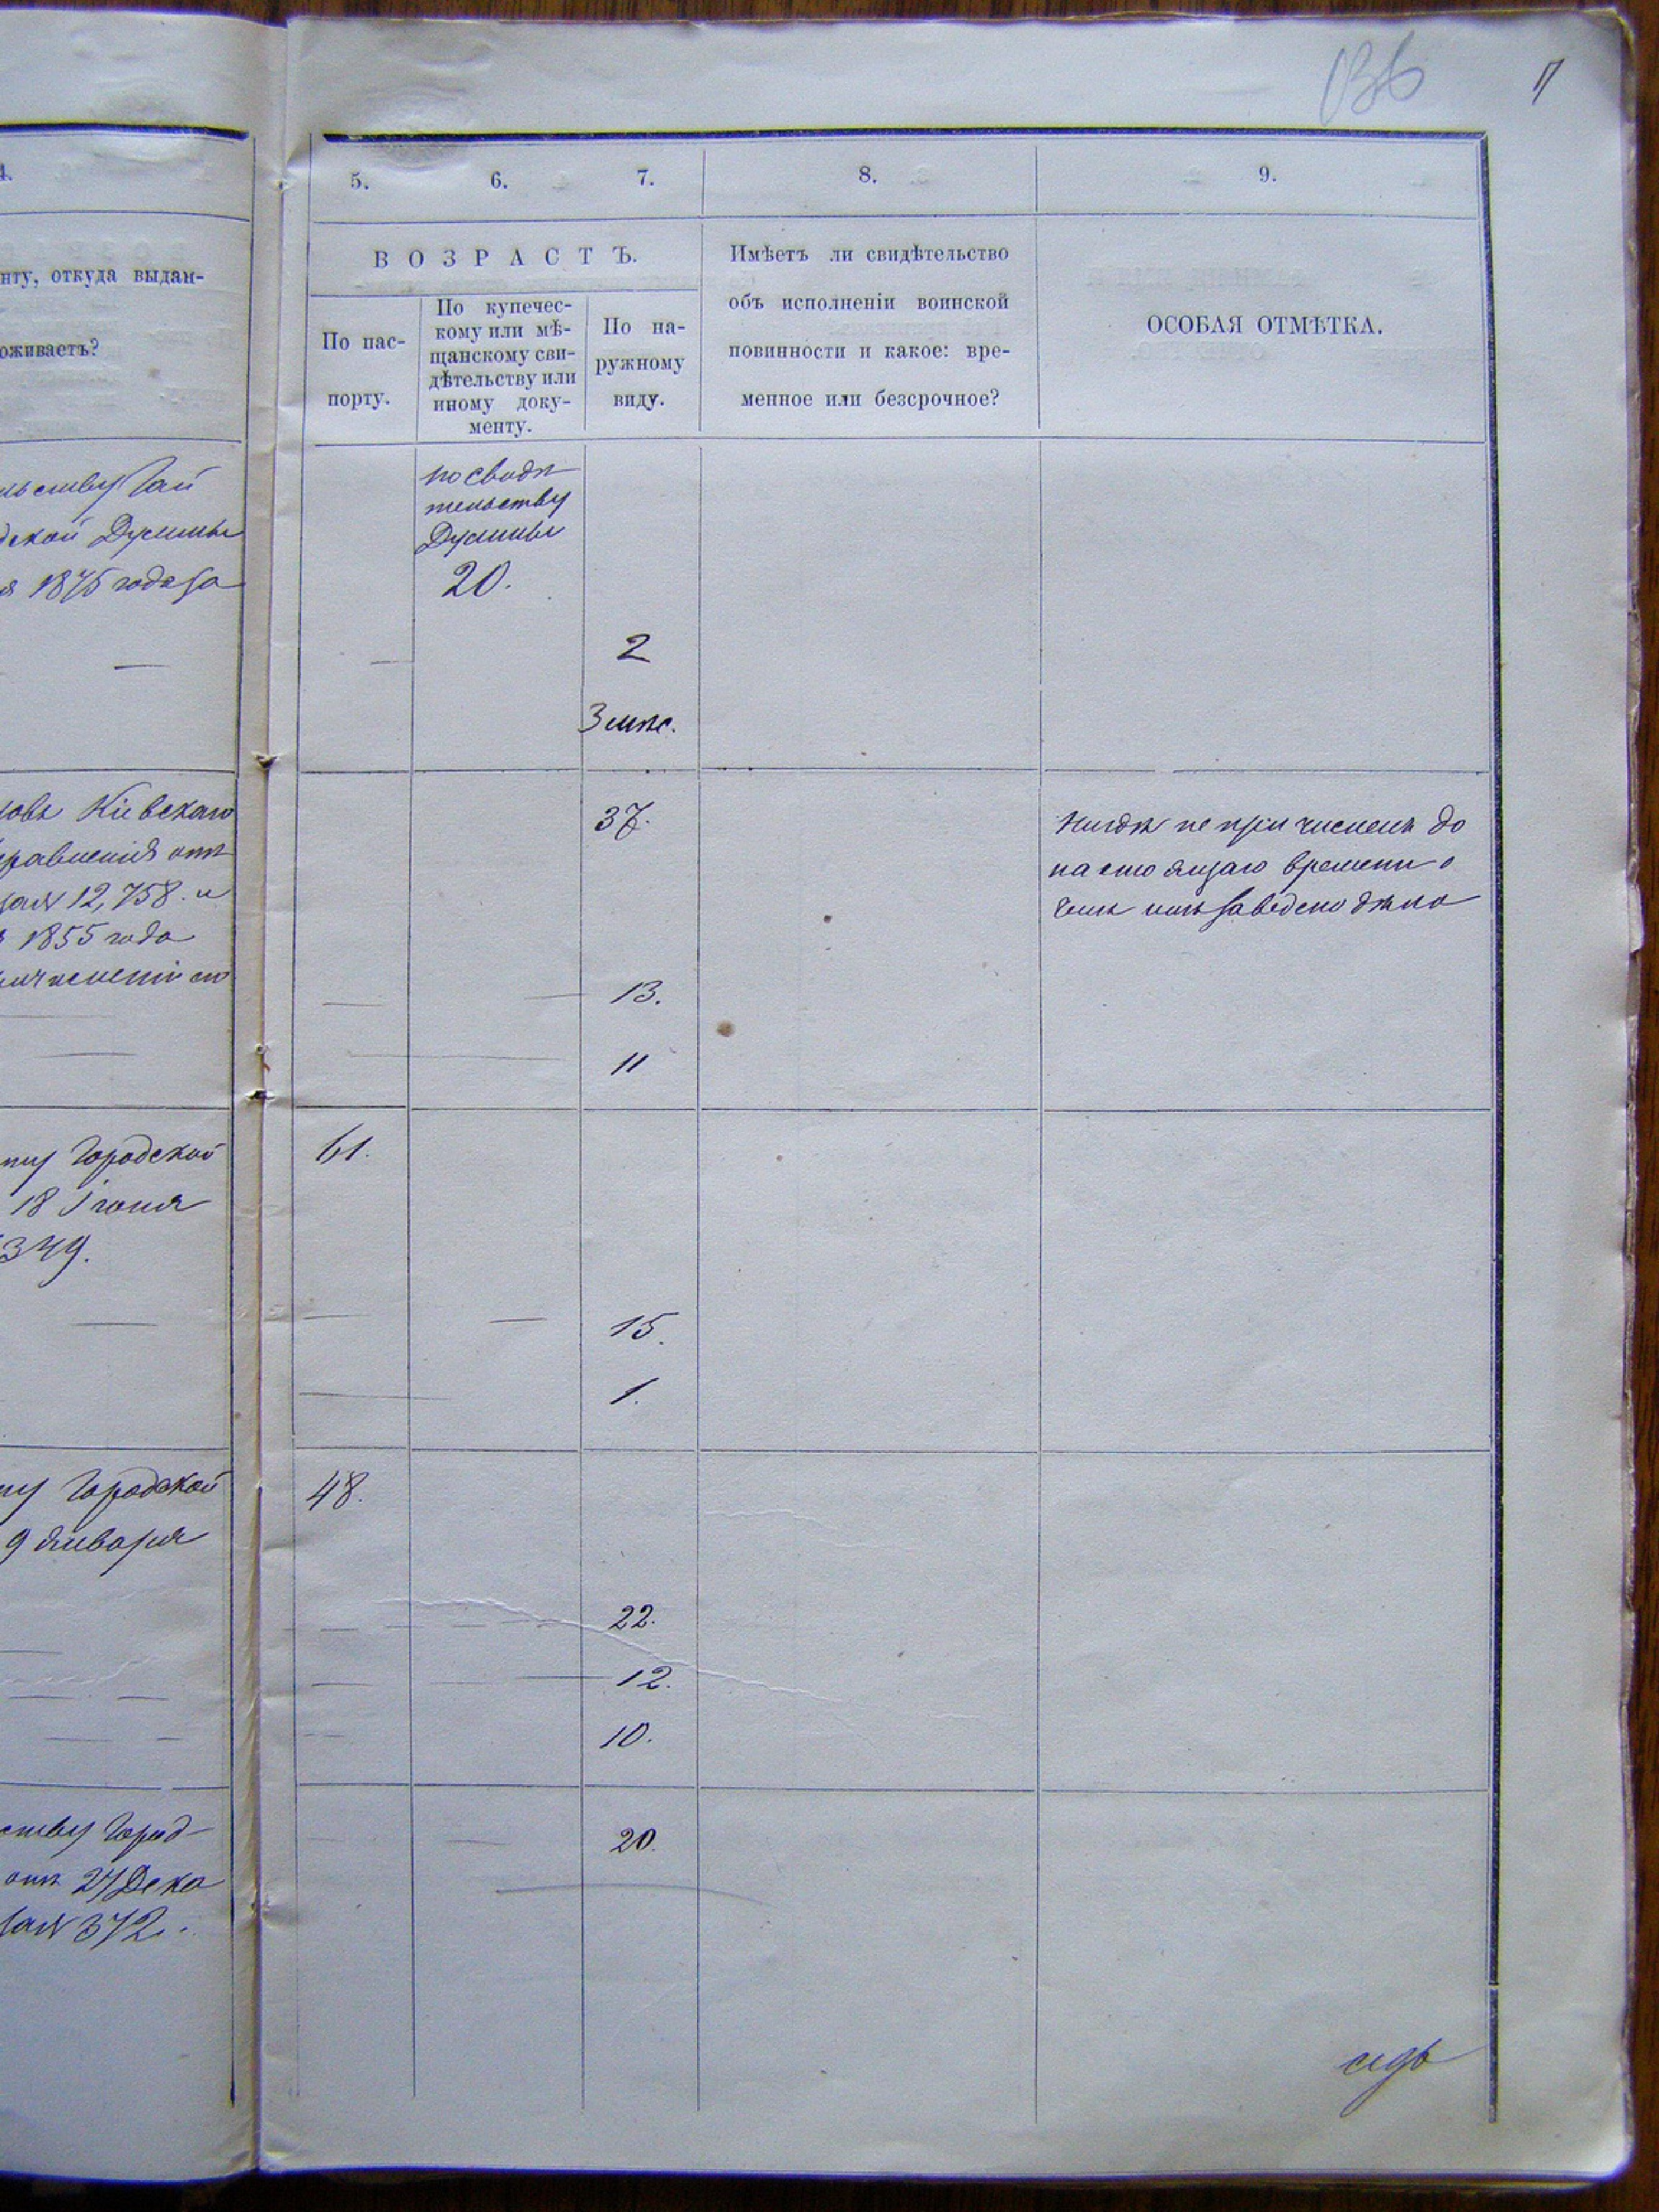 136
4.
нту, откуда выдан-
оживаетъ?
ьству Гай
дской Думы
я 1875 года за
овъ Кіевскаго
правленія отъ
за № 12,758. и
1855 года
ичисленіи его
ту Городской
18 Іюня
349.
ту Городской
9 Января
ству Город-
отъ 24 Дека
за № 372.
5.
6.
7.
8.
9.
ВОЗРАСТЪ.
По пас-
порту.
По купечес-
кому или мѣ-
щанскому сви-
дѣтельству или
иному доку-
менту.
По на-
ружному
виду.
Имѣетъ ли свидѣтельство
объ исполненіи воинской
повинности и какое: вре-
менное или безсрочное?
ОСОБАЯ ОТМѢТКА.
по свидѣ
тельству
Думы
20.
2
3 мѣс.
37.
Нигдѣ не причисленъ до
настоящаго времени о
чемъ имъ заведено дѣло
13.
11
61.
15.
1.
48.
22.
12.
10.
20.